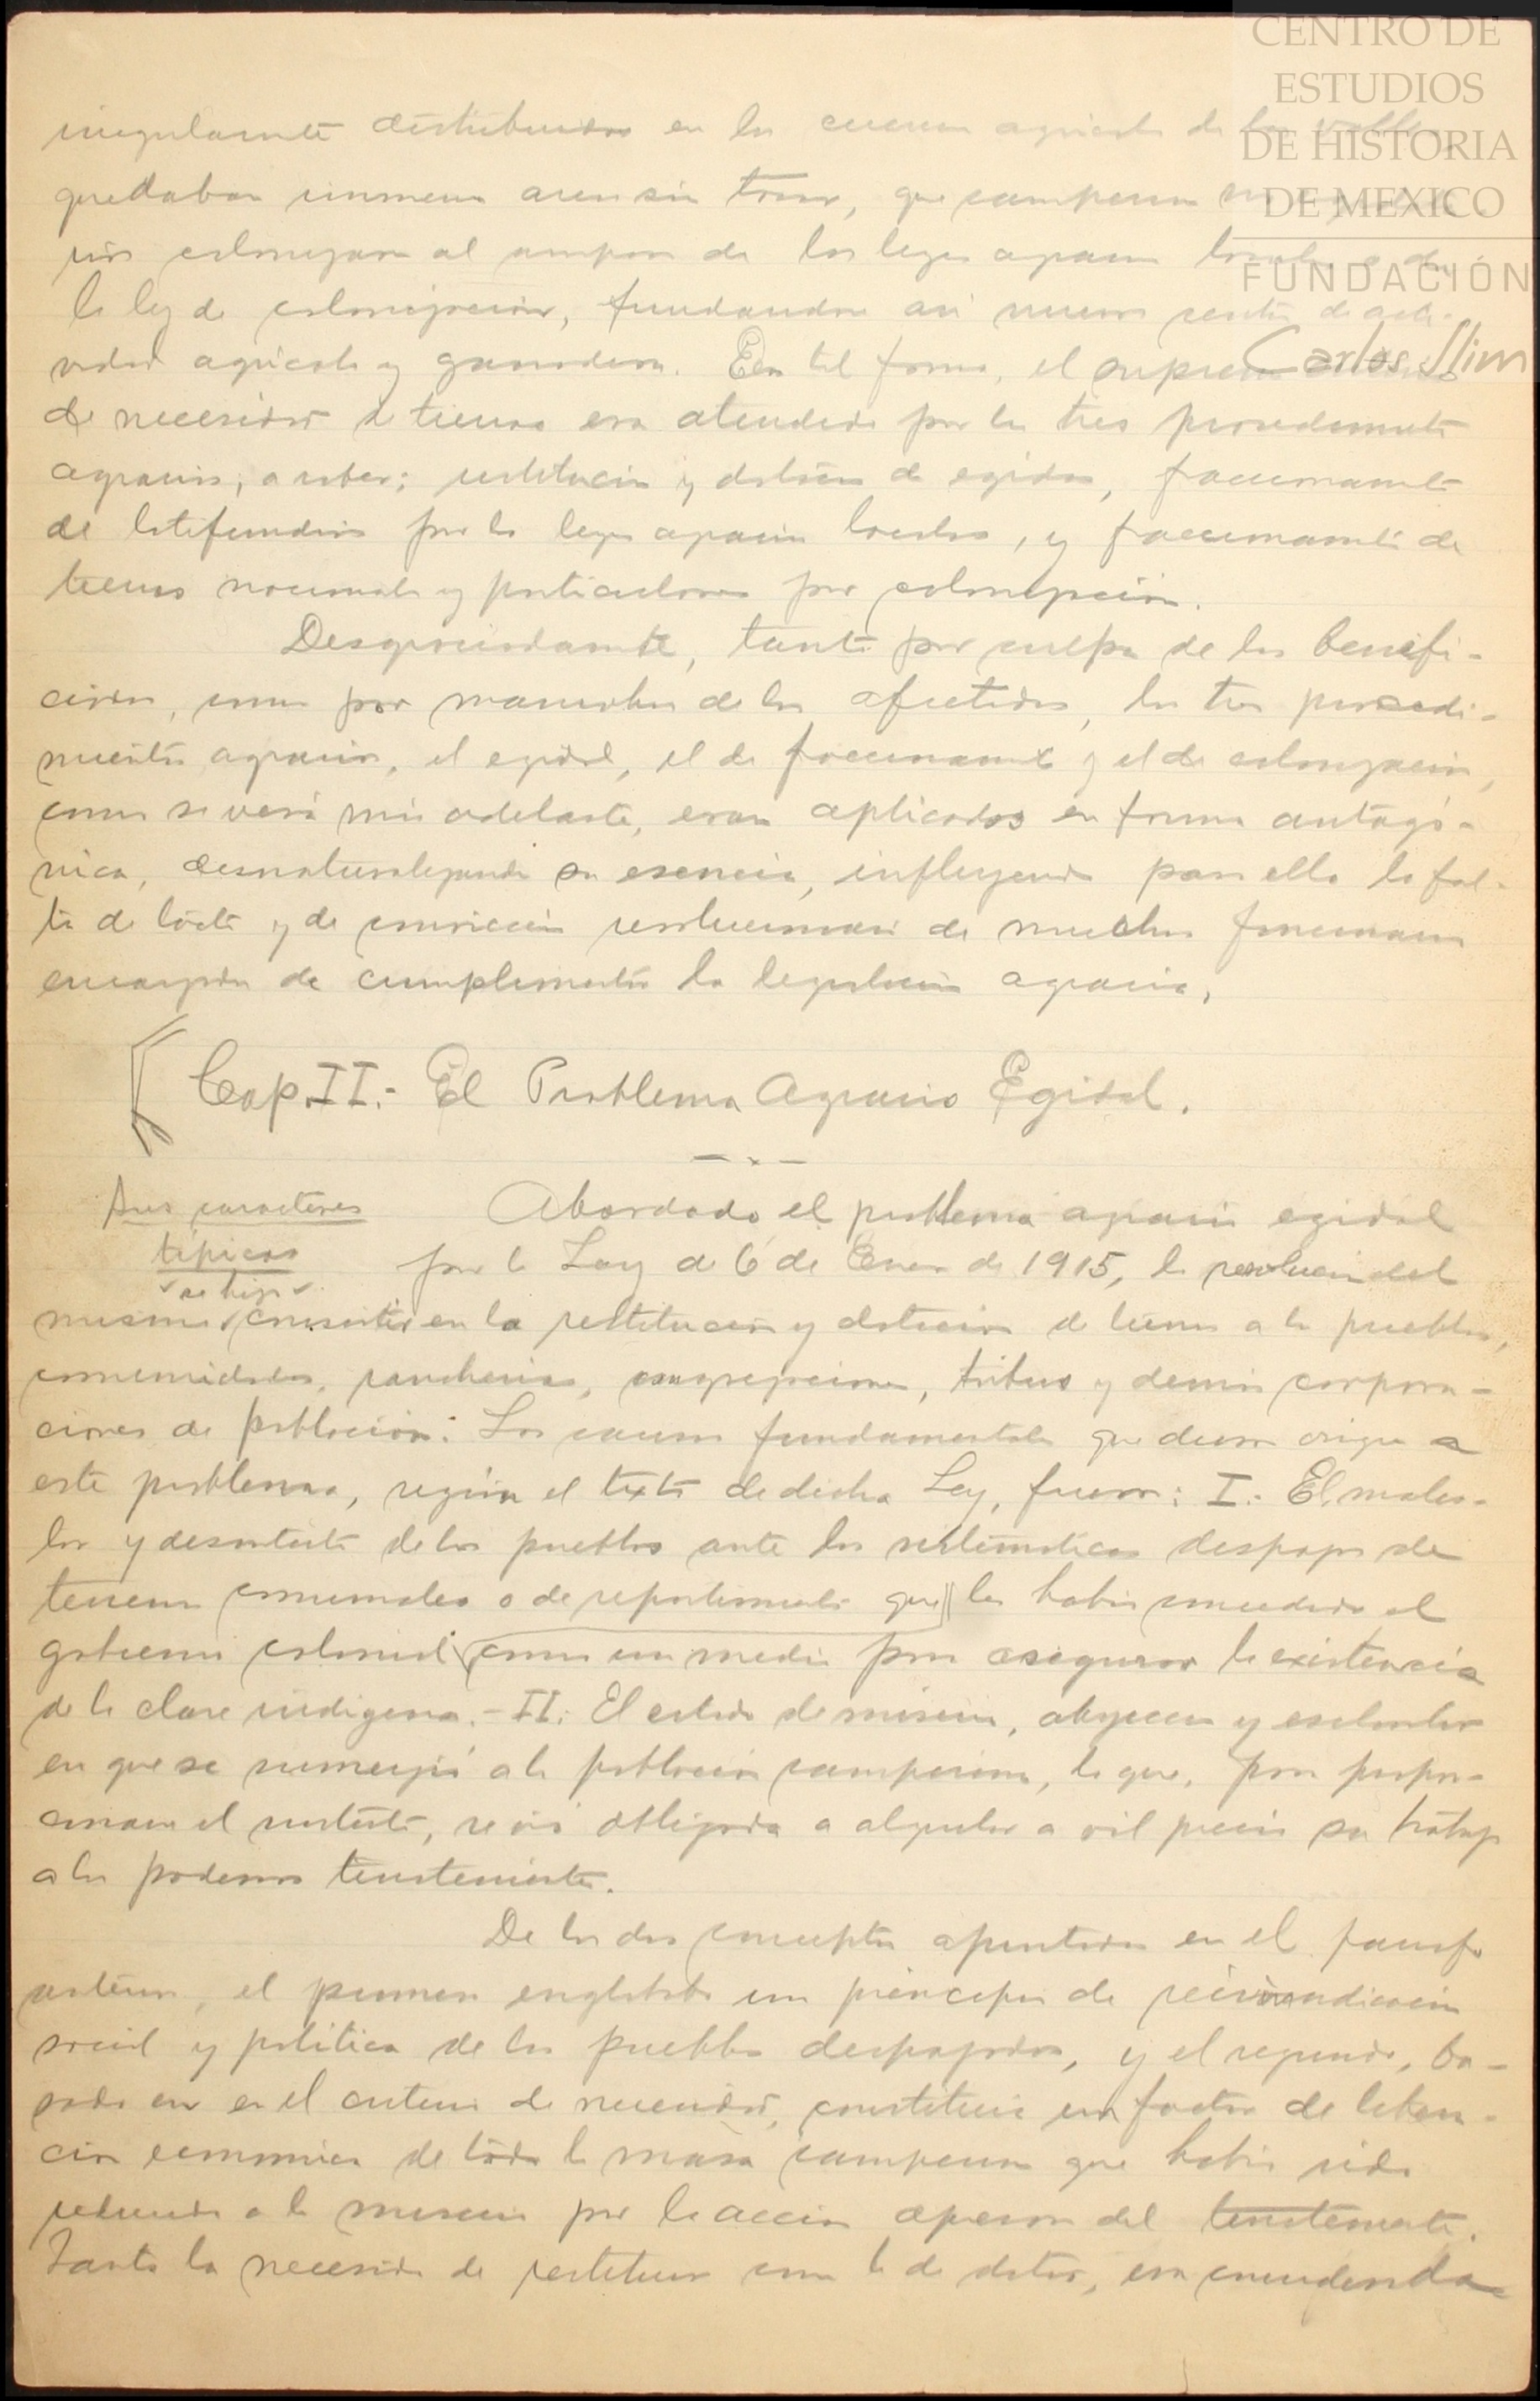 CENTRO DE
ESTUDIOS
DE HISTORIA
DE MEXICO
FUNDACIÓN
Carlos Slim
irregularmente distribuidos en la cuenca agrícola de los valles,
quedaban inmensas areas sin tomar, que campesinos sin
colonizaran al amparo de las leyes agrarias locales o de
la ley de colonización, fundandose asi nuevos centros de acti-
vidad agrícola y ganadera. En tal forma, el supremo
de necesidad de tierras era atendido por los tres procedimientos
agrarios, a saber: restitución y dotación de egidos, fraccionamiento
de latifundios por las leyes agrarias locales, y fraccionamiento de
tierras nacionales y particulares por colonización.
Desgraciadamente, tanto por culpa de los benefi-
ciados, como por maniobras de los afectados, los tres procedi-
mientos agrarios, el egidal, el de fraccionamiento y el de colonización,
como se verá más adelante, eran aplicados en forma antagó-
nica, desnaturalizando su esencia, influyendo para ello la fal-
ta de tacto y de convicción revolucionaria de muchos funcionarios
encargados de cumplimentar la legislación agraria.
Cap. II.- El Problema Agrario Egidal.
Sus caracteres
típicos
Abordado el problema agrario egidal
por la Ley de 6 de Enero de 1915, la resolución del
se hizo
mismo consistir en la restitución y dotación de tierras a los pueblos,
comunidades, rancherias, congregaciones, tribus y demás corpora-
ciones de población. Las causas fundamentales que dieron origen a
este problema, según el texto de dicha Ley, fueron: I.- El males-
tar y descontento de los pueblos ante los sistemáticos despojos de
terrenos comunales o de repartimiento que les habia concedido el
gobierno colonial como un medio para asegurar la existencia
de la clase indigena.- II.- El estado de miseria, abyección y esclavitud
en que se sumergió a la población campesina, la que, para propor-
cionarse el sustento, se vió obligada a alquilar a vil precio su trabajo
a los poderosos terratenientes.
De los dos conceptos apuntados en el parrafo
anterior, el primero englobaba un principio de reivindicación
social y política de los pueblos despojados, y el segundo, ba-
sado en en el criterio de necesidad, constituia un factor de libera-
ción economica de toda la masa campesina que habia sido
reducida a la miseria por la acción opresora del terrateniente.
Tanto la necesidad de restituir como la de dotar, era considerada